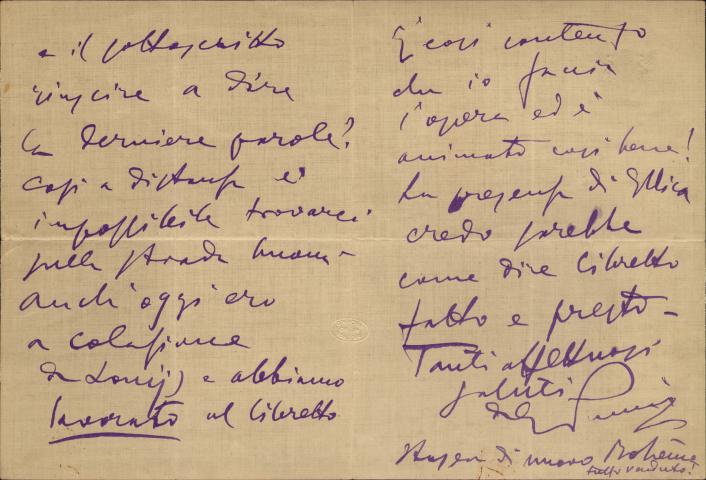 e il sottoscritto
riuscire a dire
la derniere parole?
così a distanza è
impossibile trovarci
sulla strada buona –
anch'oggi ero
a colazione
da Louÿs e abbiamo
lavorato al libretto
È così contento
che io faccia
l'opera ed è
animato così bene!
La presenza di Illica
credo sarebbe
come dire libretto
fatto e presto –
Tanti affettuosi
saluti
dal Puccini
Stasera di nuovo Bohème
tutto venduto!